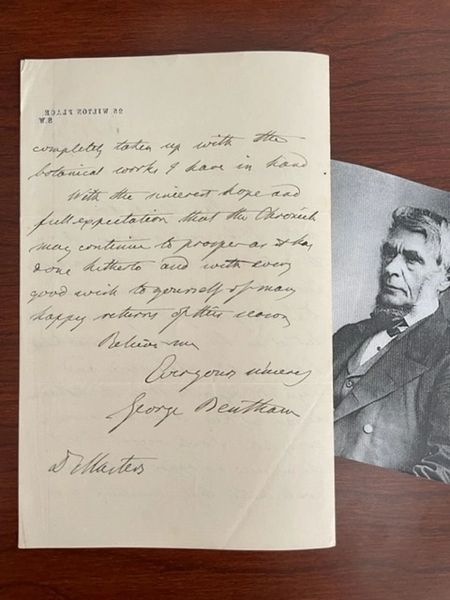 25 WILTON PLACE
S.W.
completely taken up with the
botanical works I have in hand
With the sincerest hope and
full expectation that the Chronicle
may continue to prosper as it has
done hitherto and with every
good wish to yourself of many
happy returns of this season
Believe me
Ever yours sincerely
George Bentham
Dr Masters